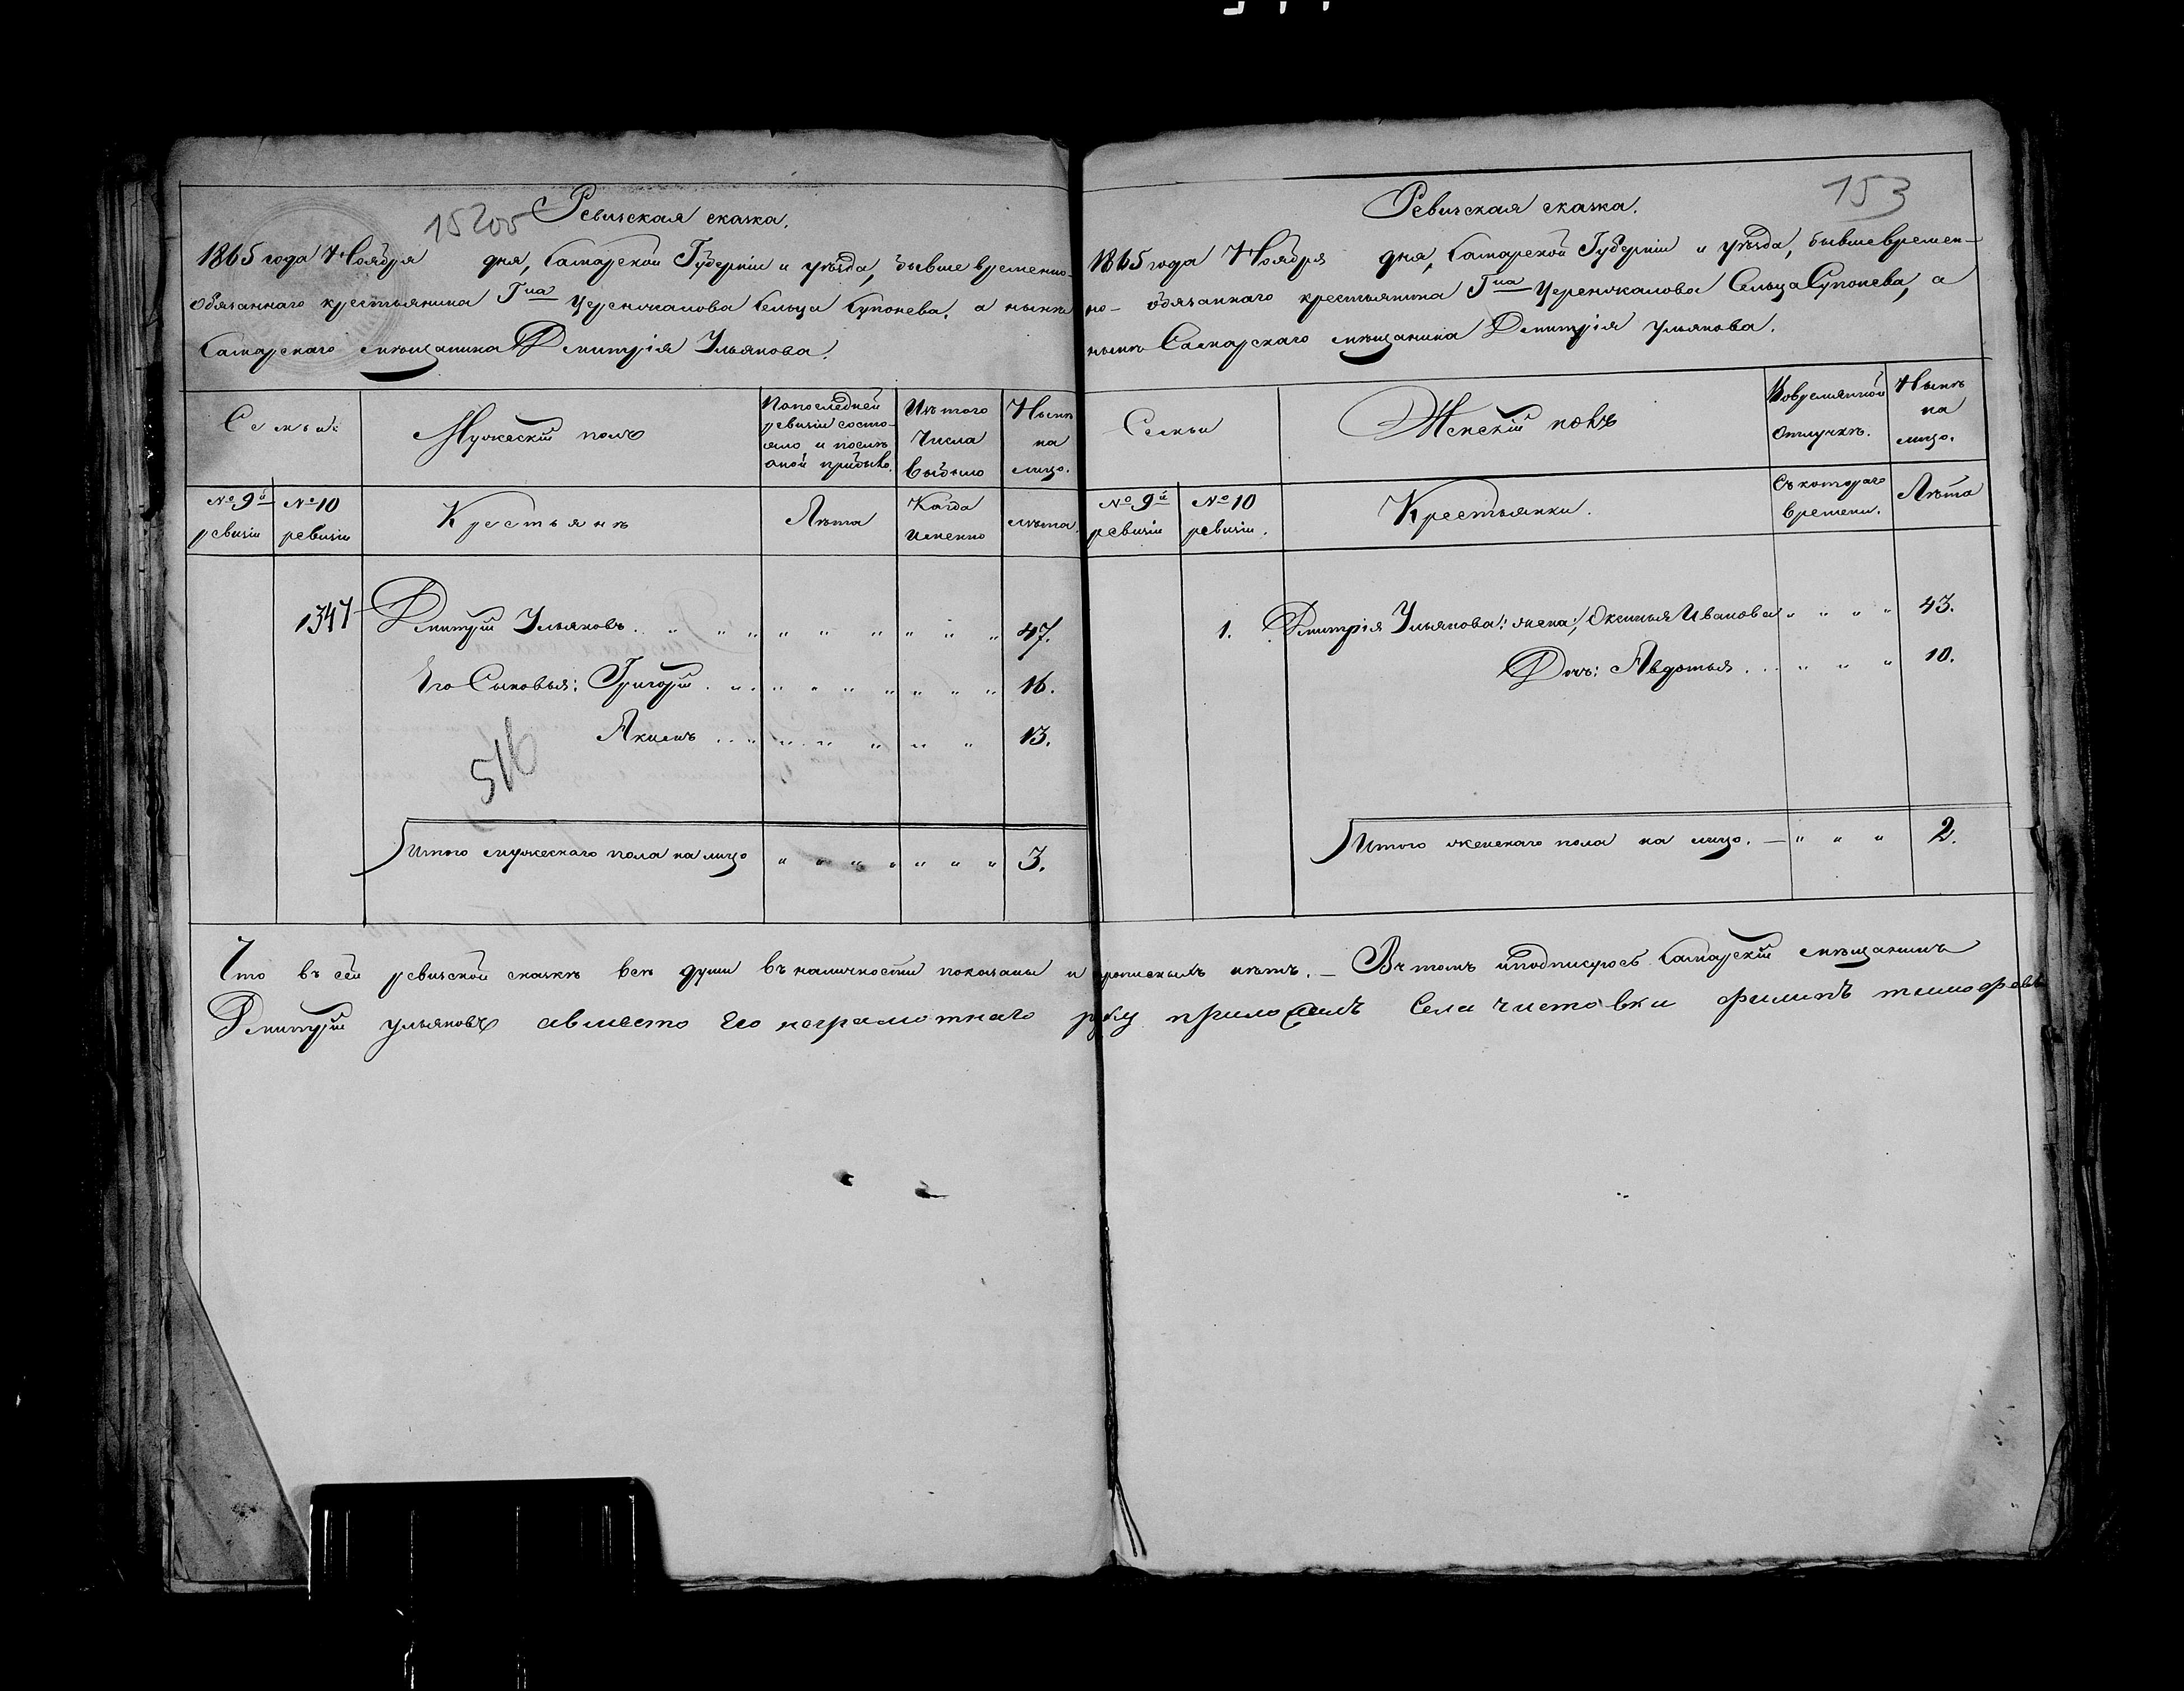 15205 Ревизская сказка.
1865 года Ноября дня, Самарской Губерніи и уѣзда, бывше временно-
обязаннаго крестьянина Г-на Черенокалова Сельца Супонева, а нынѣ
Самарскаго мѣщанина Дмитрія Ульянова.
Семьи
Мужескій полъ
По последней ревизіи состояло и послѣ оной прибыло.
Изъ того числа выбыло
Нынѣ на лицо.
№ 9й ревизіи
№ 10 ревизіи
Крестьянѣ
Лѣта
Когда именно
лѣта
1347 Дмитрій Ульяновъ 47.
Его Сыновья: Григорій 16.
Акимъ 13.
516
Итого мужескаго пола на лицо 3.
153
Ревизская сказка.
1865 года Ноября дня, Самарской Губерніи и уѣзда, бывше времен-
но-обязаннаго крестьянина Г-на Черенокалова Сельца Супонева, а
нынѣ Самарскаго мѣщанина Дмитрія Ульянова.
Семьи
Женскій полъ
Во времянной отлучкѣ.
Нынѣ на лицо.
№ 9й ревизіи
№ 10 ревизіи.
Крестьянки.
Съ котораго времени.
Лѣта
1. Дмитрія Ульянова: жена: Оксинья Иванова 43.
Дочь: Авдотья 10.
Итого женскаго пола на лицо. 2.
Что въ сей ревизской сказкѣ всѣ души въ наличности показаны и прописныхъ нѣтъ. — Въ томъ и подписуюсь Самарскій мѣщанинъ
Дмитрій Ульяновъ авместо Его неграмотнаго руку приложилъ Села чистовки филипъ тимофевъ